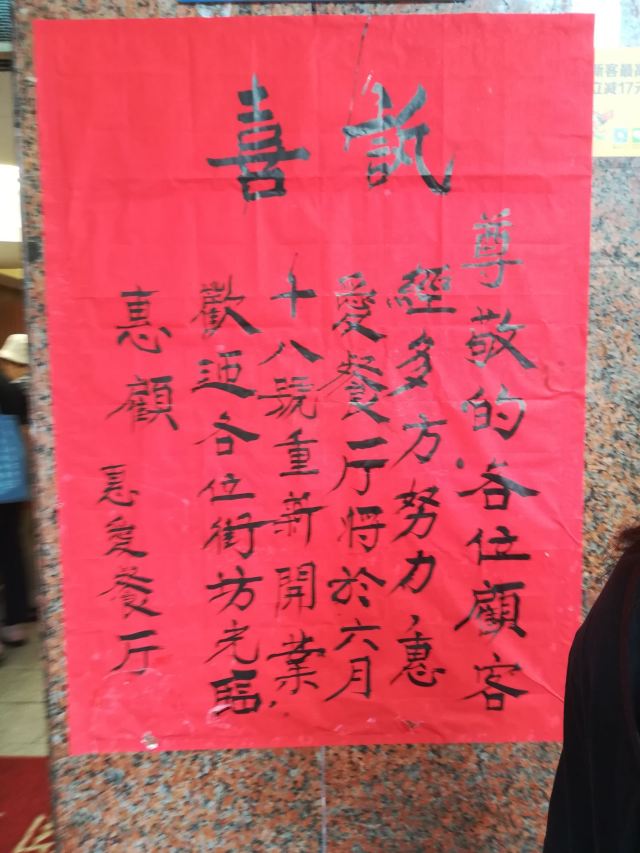 喜訊
尊敬的各位顧客
經多方努力,惠
愛餐厅将於六月
十八號重新開業,
歡迎各位街坊光臨
惠顧
惠愛餐厅
客最高
立减17元